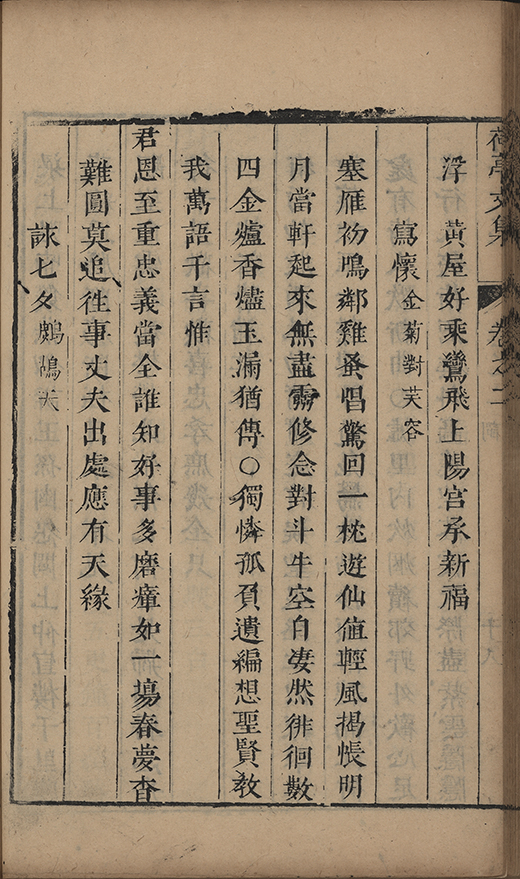 荷亭文集
卷之二
浮黃屋好乘鸞飛上陽宮承新福
寫懷 金菊對芙容
塞雁初鳴鄰雞蚤唱驚回一枕遊仙値輕風揭帳明
月當軒起來無盡霱修念對斗牛空自凄然徘徊數
四金爐香燼玉漏猶傳○獨憐孤負遺編想聖賢敎
我萬語千言惟
君恩至重忠義當全誰知好事多磨瘴如一塲春夢杳
難圓莫追徃事丈夫出處應有天緣
詠七夕鷓鴣天